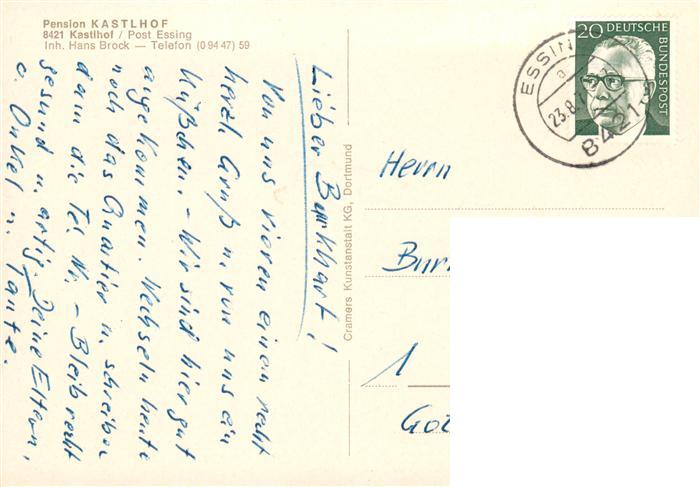 Pension KASTLHOF
8421 Kastlhof / Post Essing
Inh. Hans Brock — Telefon (0 94 47) 59
Lieber Burkhart!
Von uns vieren einen recht
herzl. Gruß u. von uns ein
Küßchen. - Wir sind hier gut
angekommen. Wechseln heute
noch das Quartier u. schreiben
dann die Tel. Nr. - Bleib recht
gesund u. artig. Deine Eltern,
o. Onkel u. Tante.
Cramers Kunstanstalt KG, Dortmund
20 DEUTSCHE
BUNDESPOST
ESSIN
a
23.8.7
8421
Herrn
Bur
1
Got